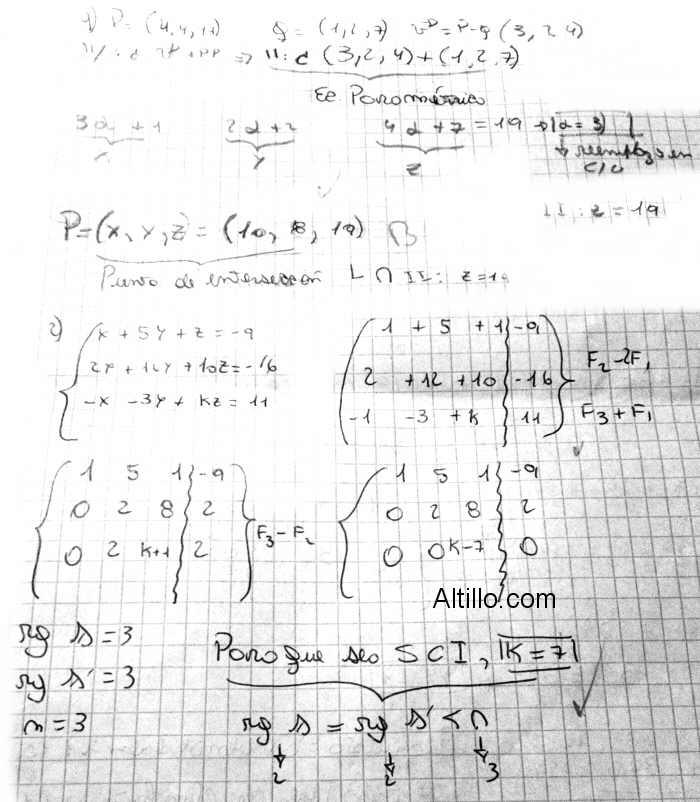 1) P = (4,4,11) Q = (1,2,7) P-Q (3,2,4)
α (3,2,4)+(1,2,7)
Ec Paramétrica
3α+1 2α+2 4α+7 = 19 → |α=3|
x y z ↓ reemplazo en
c/u
II: z = 19
P=(x,y,z) = (10,8,19)
Punto de intersección L ∩ II: z=19
2) { x + 5y + z = -9
2x + 12y + 10z = -16
-x -3y + kz = 11
( 1 + 5 + 1 | -9
2 +12 +10 | -16
-1 -3 +k | 11 ) F2-2F1
F3+F1
( 1 5 1 | -9
0 2 8 | 2
0 2 k+1 | 2 ) F3-F2
( 1 5 1 | -9
0 2 8 | 2
0 0 k-7 | 0
Altillo.com
rg s = 3
rg s' = 3
n = 3
Para que sea SCI, |K=7|
rg s = rg s' < n
↓ ↓ ↓
2 2 3